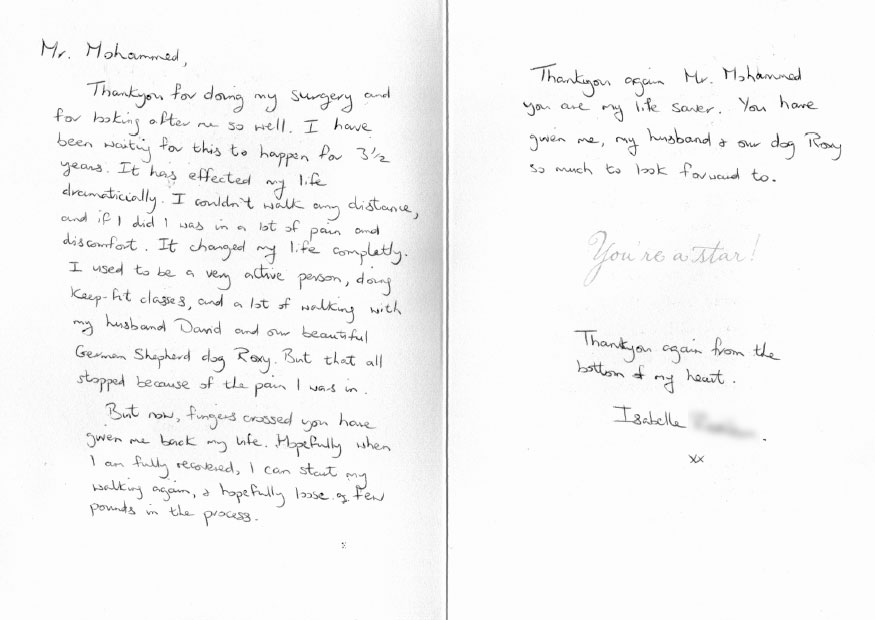 Mr. Mohammed,
Thankyou for doing my surgery and
for looking after me so well. I have
been waiting for this to happen for 3½
years. It has effected my life
dramaticially. I couldn't walk any distance,
and if I did I was in a lot of pain and
discomfort. It changed my life completly.
I used to be a very active person, doing
Keep-fit classes, and a lot of walking with
my husband David and our beautiful
German Shepherd dog Roxy. But that all
stopped because of the pain I was in.
But now, fingers crossed you have
given me back my life. Hopefully when
I am fully recovered, I can start my
walking again, & hopefully loose a few
pounds in the process.
Thankyou again Mr. Mohammed
you are my life saver. You have
given me, my husband & our dog Roxy
so much to look forward to.
You're a star!
Thankyou again from the
bottom of my heart.
Isabelle
xx